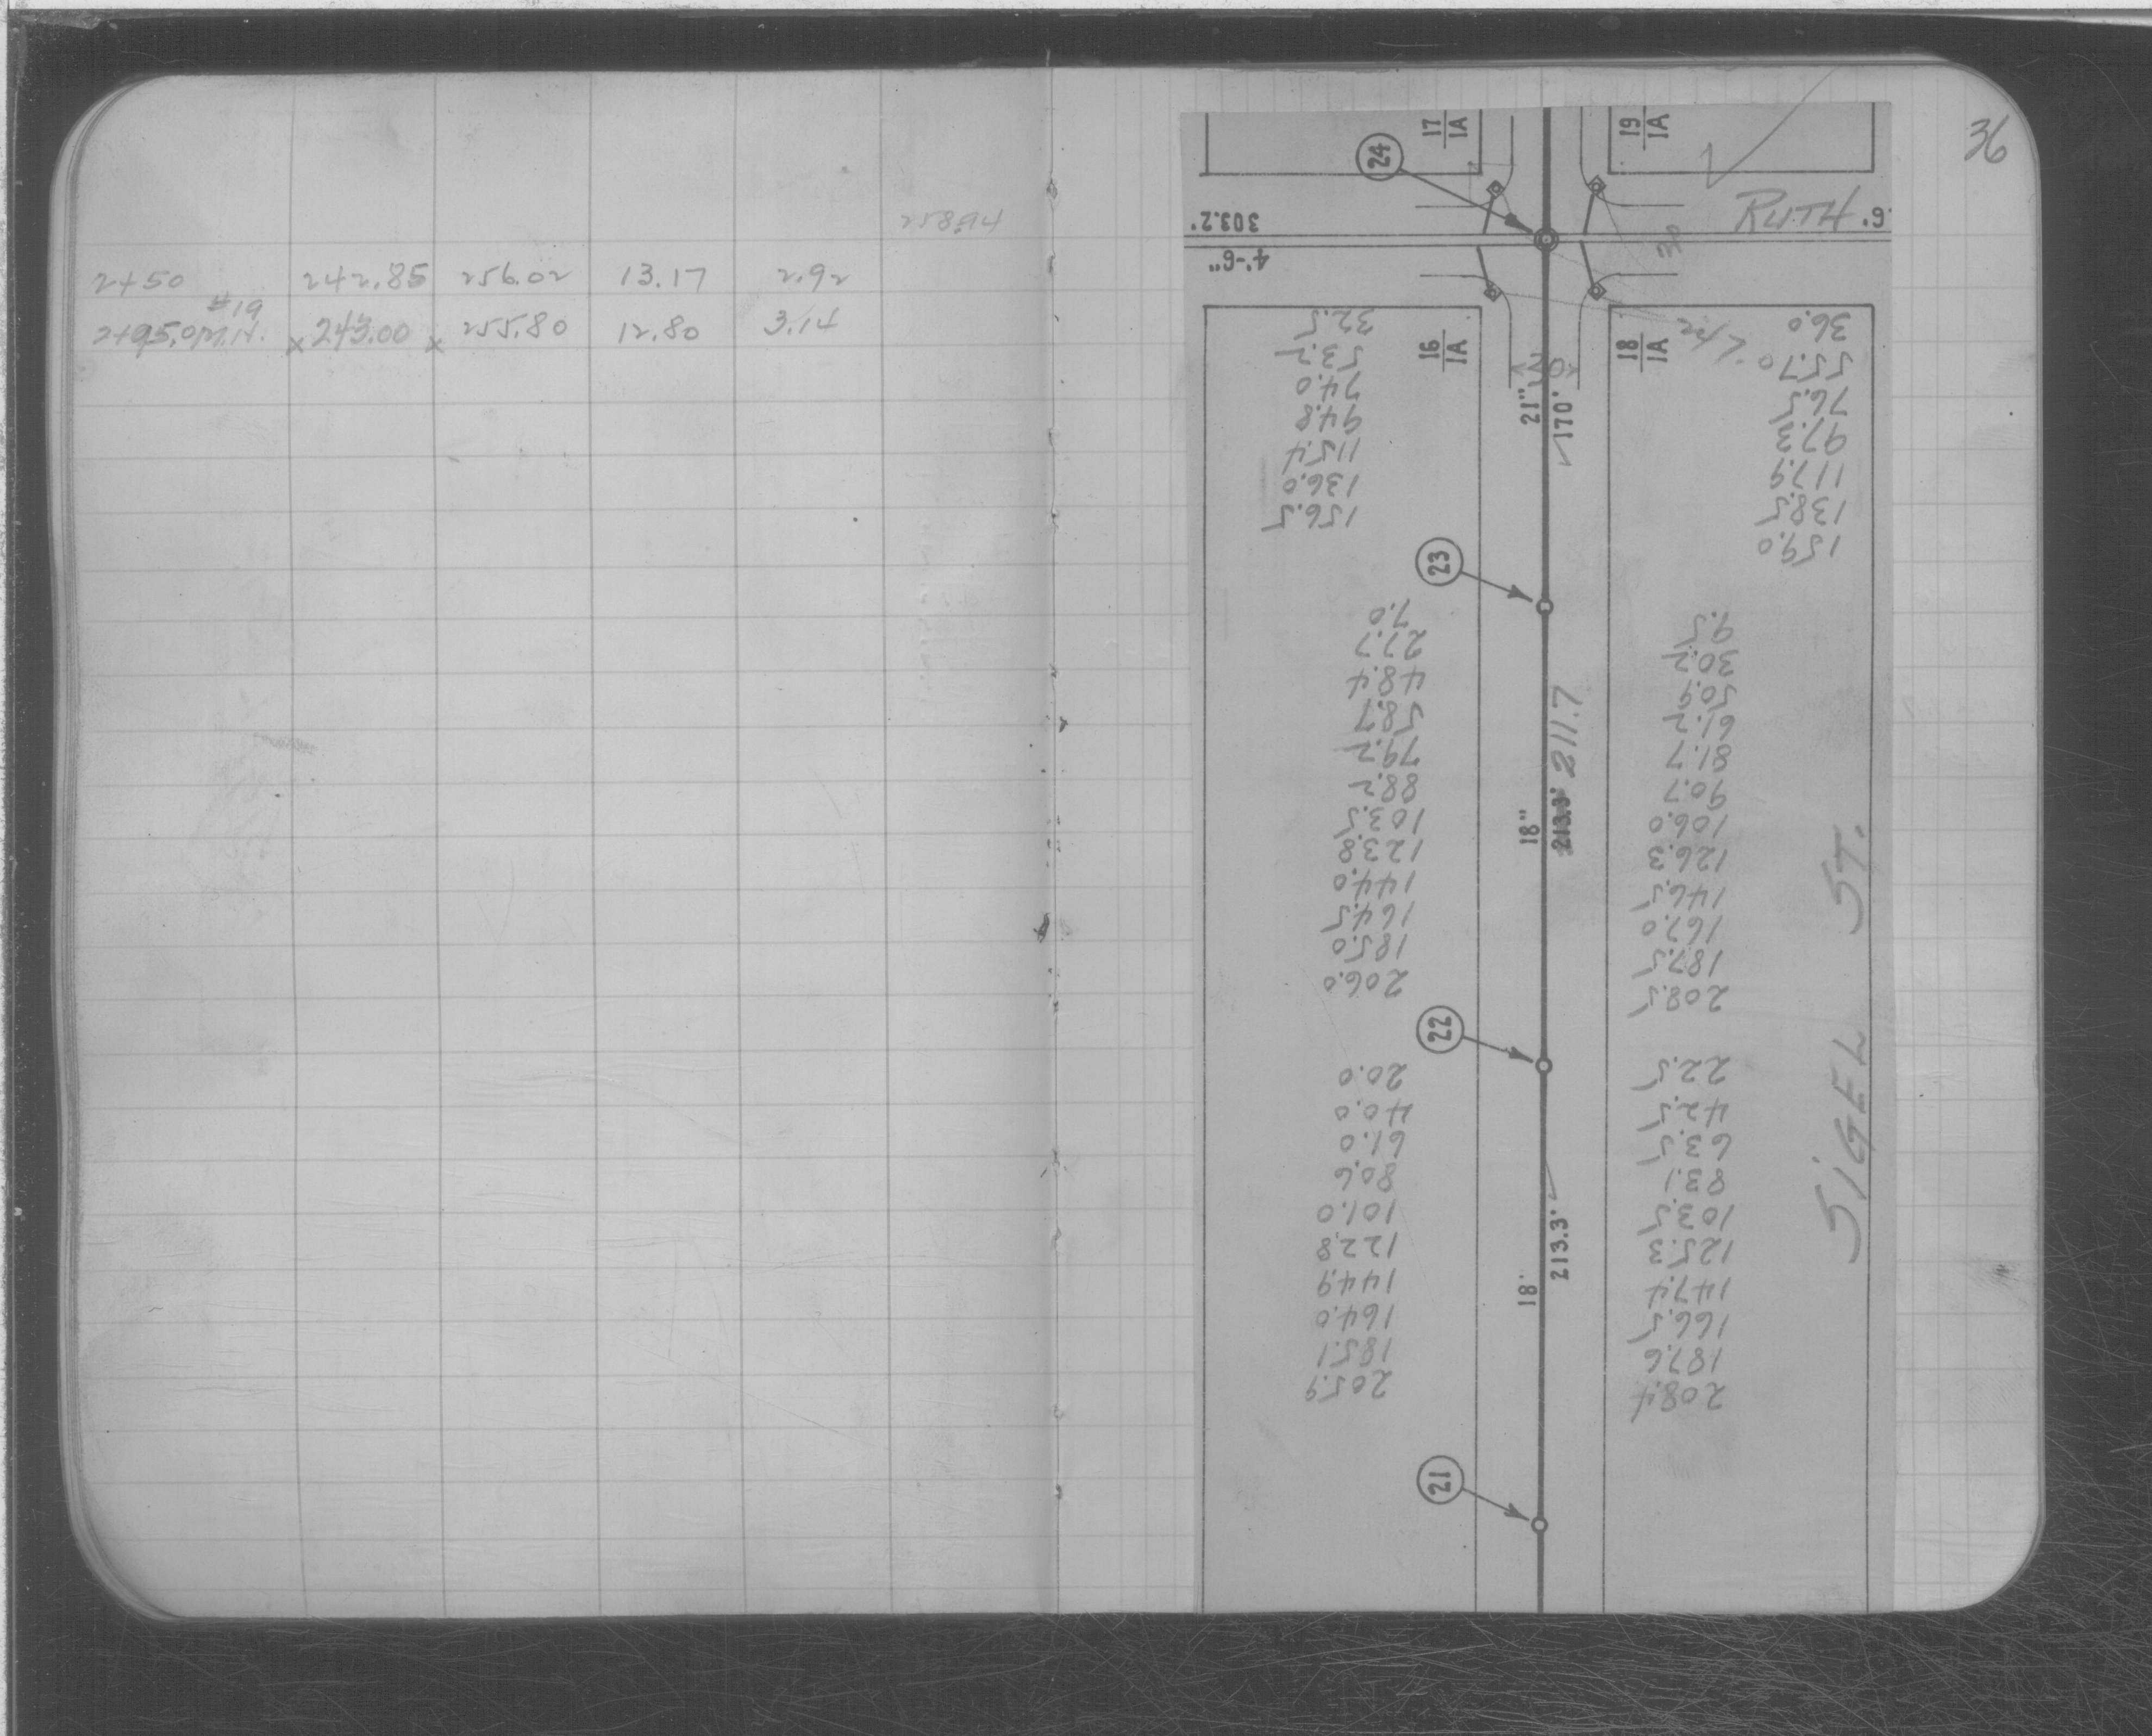 258.94
2+50 242.85 256.02 13.17 2.92
#19
2+95.0 M.H. x 243.00 x 255.80 12.80 3.14
36
17
1A
19
1A
24
303.2'
RUTH
.6'
4'-6"
16
1A
18
1A
32.5
53.2
74.0
94.8
115.4
136.0
156.5
36.0
55.70
76.5
97.3
117.9
138.5
159.0
21"
170'
23
7.0
27.7
48.4
58.7
79.2
88.2
103.5
123.8
144.0
164.5
185.0
206.0
9.5
30.2
50.9
61.2
81.7
90.7
106.0
126.3
146.5
167.0
187.5
208.5
18"
213.3' 211.7
22
20.0
40.0
61.0
80.6
101.0
122.8
144.9
164.0
185.1
205.9
22.5
42.5
63.5
83.1
103.5
125.3
147.4
166.5
187.6
208.4
18'
213.3'
21
SIGEL ST.